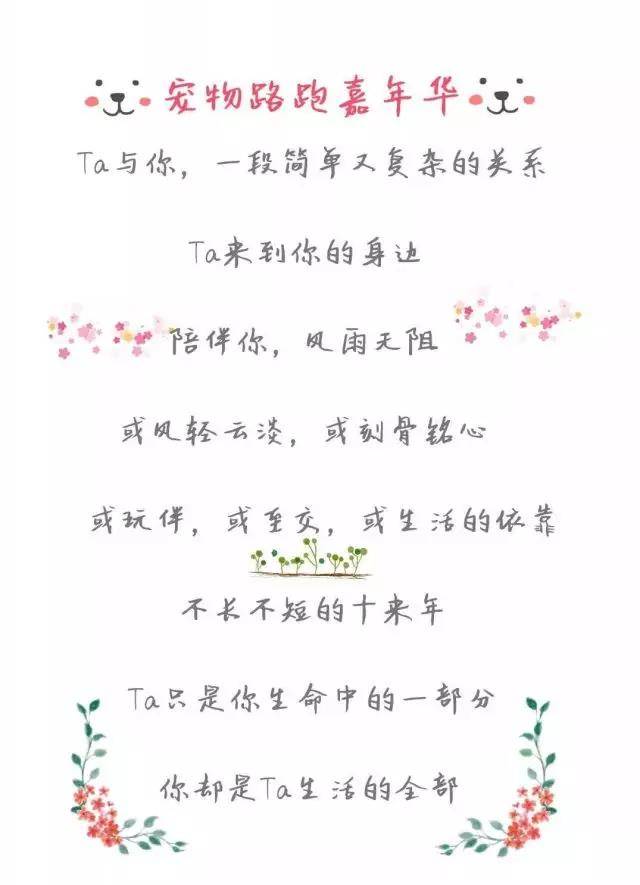 宠物路跑嘉年华
Ta与你，一段简单又复杂的关系
Ta来到你的身边
陪伴你，风雨无阻
或风轻云淡，或刻骨铭心
或玩伴，或至交，或生活的依靠
不长不短的十来年
Ta只是你生命中的一部分
你却是Ta生活的全部